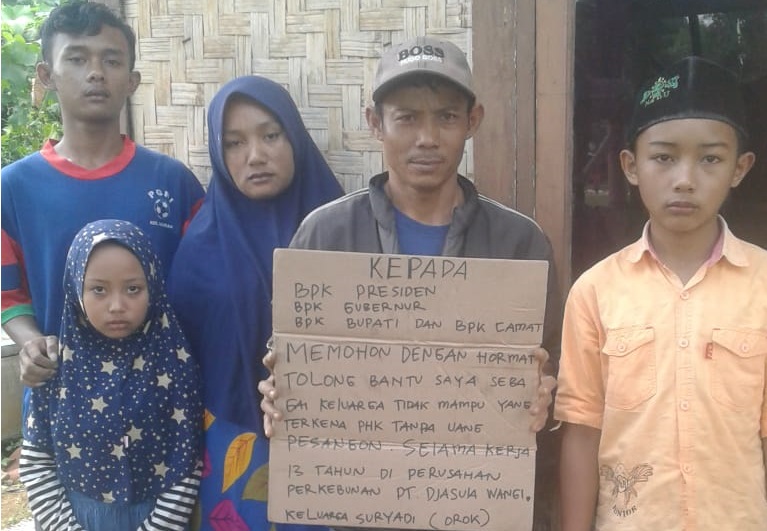 BOSS
HUGO BOSS
PGRI
KEPADA
BPK PRESIDEN
BPK GUBERNUR
BPK BUPATI DAN BPK CAMAT
MEMOHON DENGAN HORMAT
TOLONG BANTU SAYA SEBA
GAI KELUARGA TIDAK MAMPU YANG
TERKENA PHK TANPA UANG
PESANGON. SELAMA KERJA
13 TAHUN DI PERUSAHAN
PERKEBUNAN PT DJASULA WANGI.
KELUARGA SURYADI (OROK)
JUNIOR